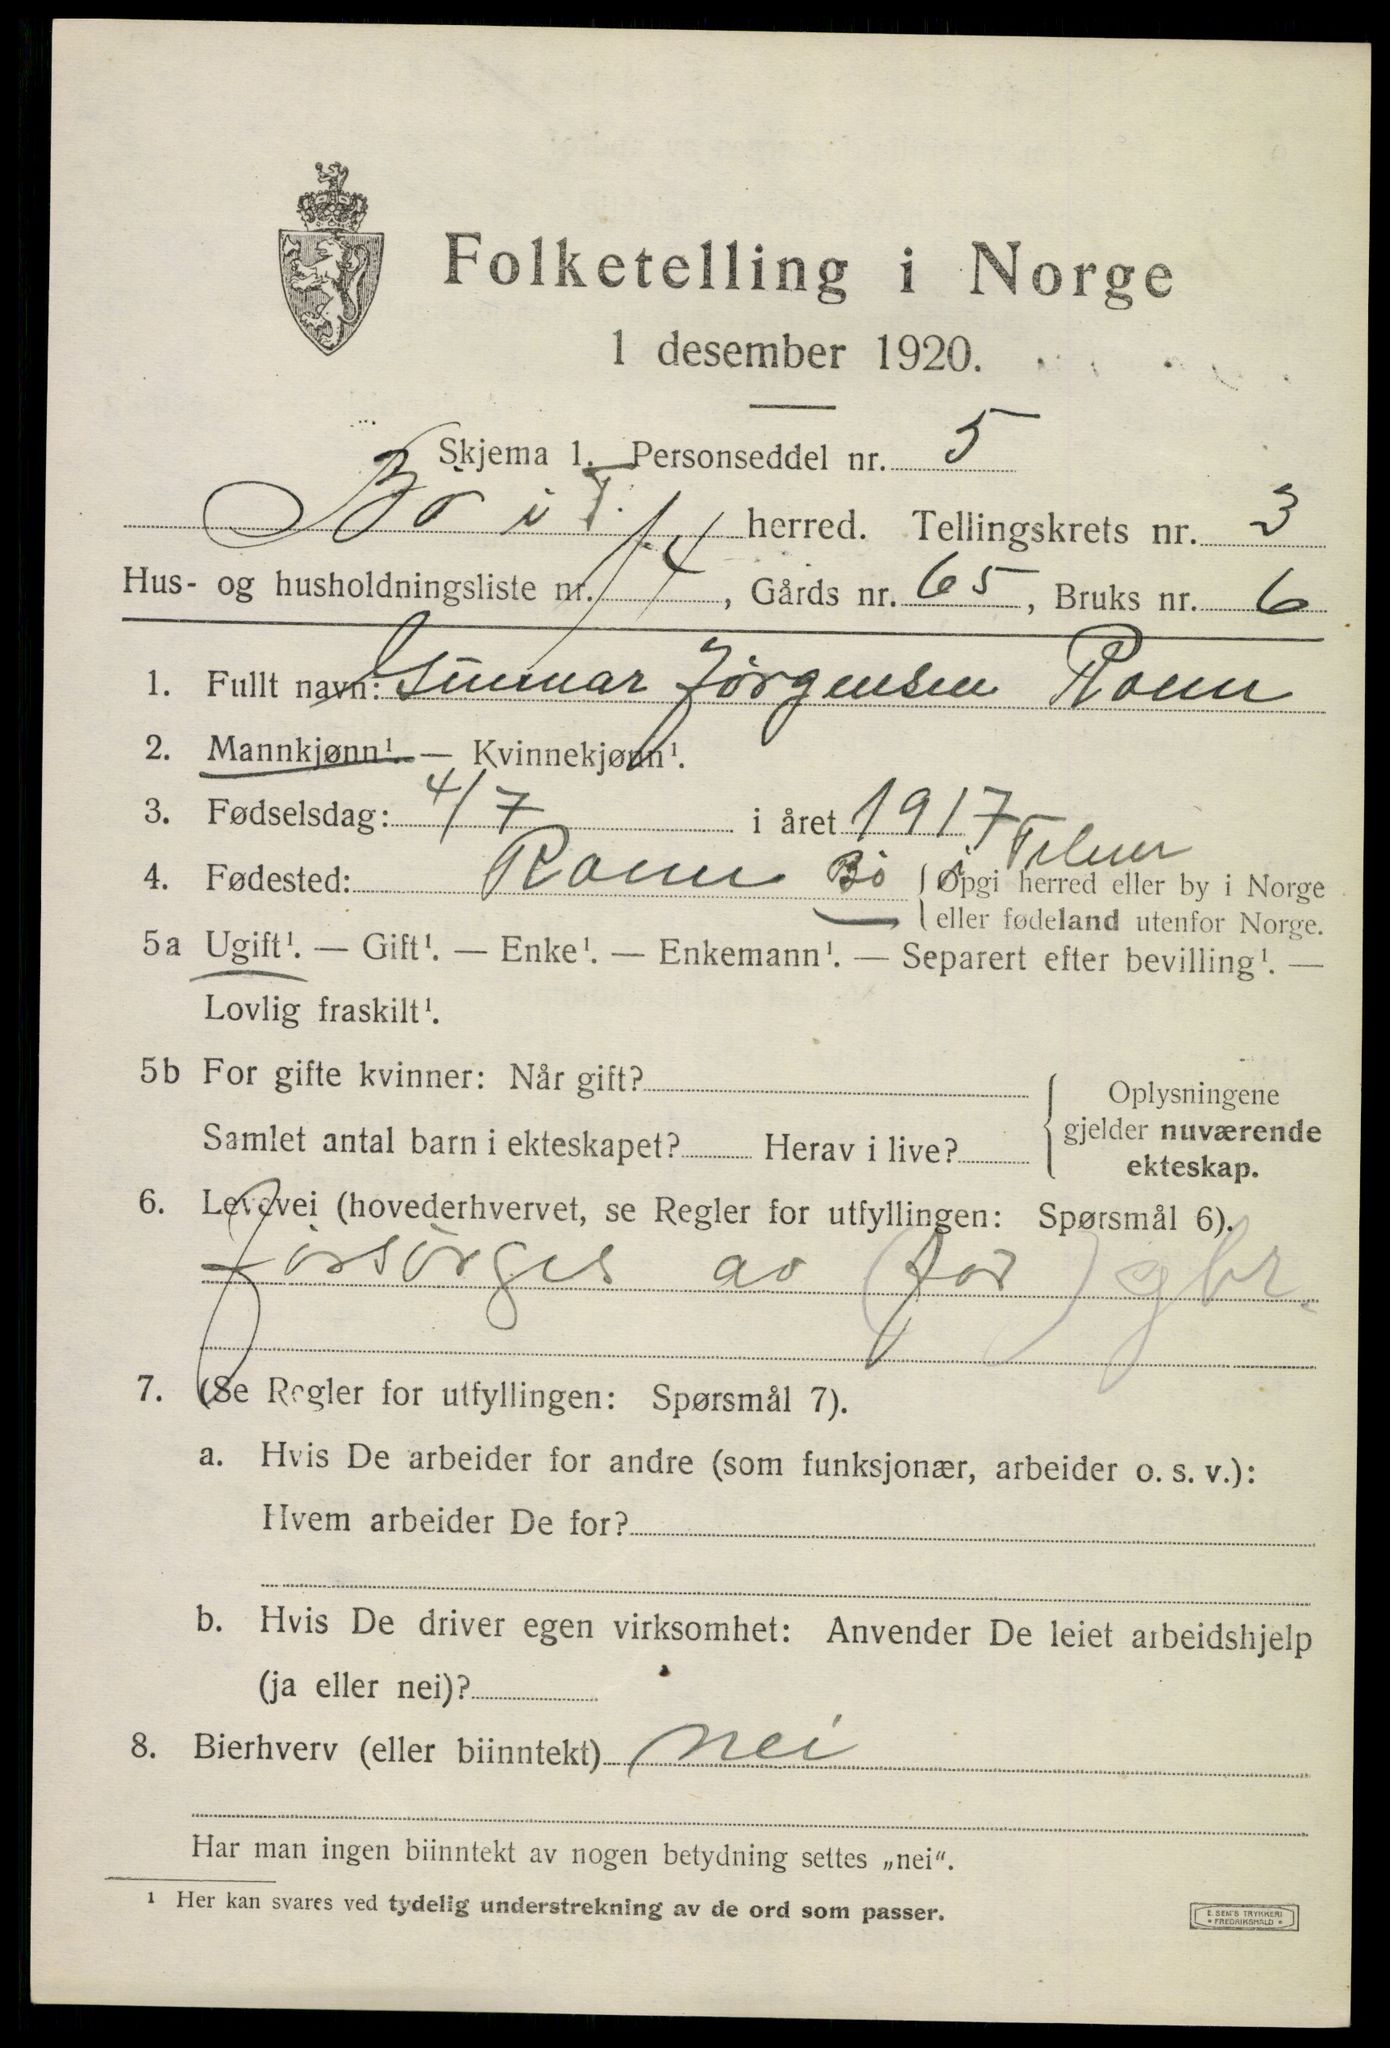 Folketelling i Norge
1 desember 1920.
Skjema 1. Personseddel nr. 5
Bö i T. herred. Tellingskrets nr. 3
Hus- og husholdningsliste nr. 14, Gårds nr. 65, Bruks nr. 6
1. Fullt navn: Gunnar Jørgensen Ronn
2. Mannkjønn¹. — Kvinnekjønn¹.
3. Fødselsdag: 4/7 i året 1917
4. Fødested: Ronn Bö i Telem
Opgi herred eller by i Norge
eller fødeland utenfor Norge.
5a Ugift¹. — Gift¹. — Enke¹. — Enkemann¹. — Separert efter bevilling¹. —
Lovlig fraskilt¹.
5b For gifte kvinner: Når gift?
Samlet antal barn i ekteskapet? Herav i live?
Oplysningene
gjelder nuværende
ekteskap.
6. Levevei (hovederhvervet, se Regler for utfyllingen: Spørsmål 6).
Forsörges av (far) gbr.
7. (Se Regler for utfyllingen: Spørsmål 7).
a. Hvis De arbeider for andre (som funksjonær, arbeider o. s. v.):
Hvem arbeider De for?
b. Hvis De driver egen virksomhet: Anvender De leiet arbeidshjelp
(ja eller nei)?
8. Bierhverv (eller biinntekt) nei
Har man ingen biinntekt av nogen betydning settes „nei“.
¹ Her kan svares ved tydelig understrekning av de ord som passer.
E. SEM'S TRYKKERI
FREDRIKSHALD